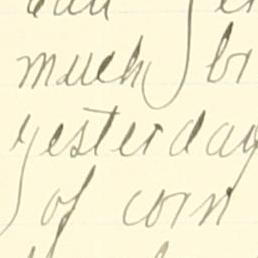 much br
yesterday
of corn